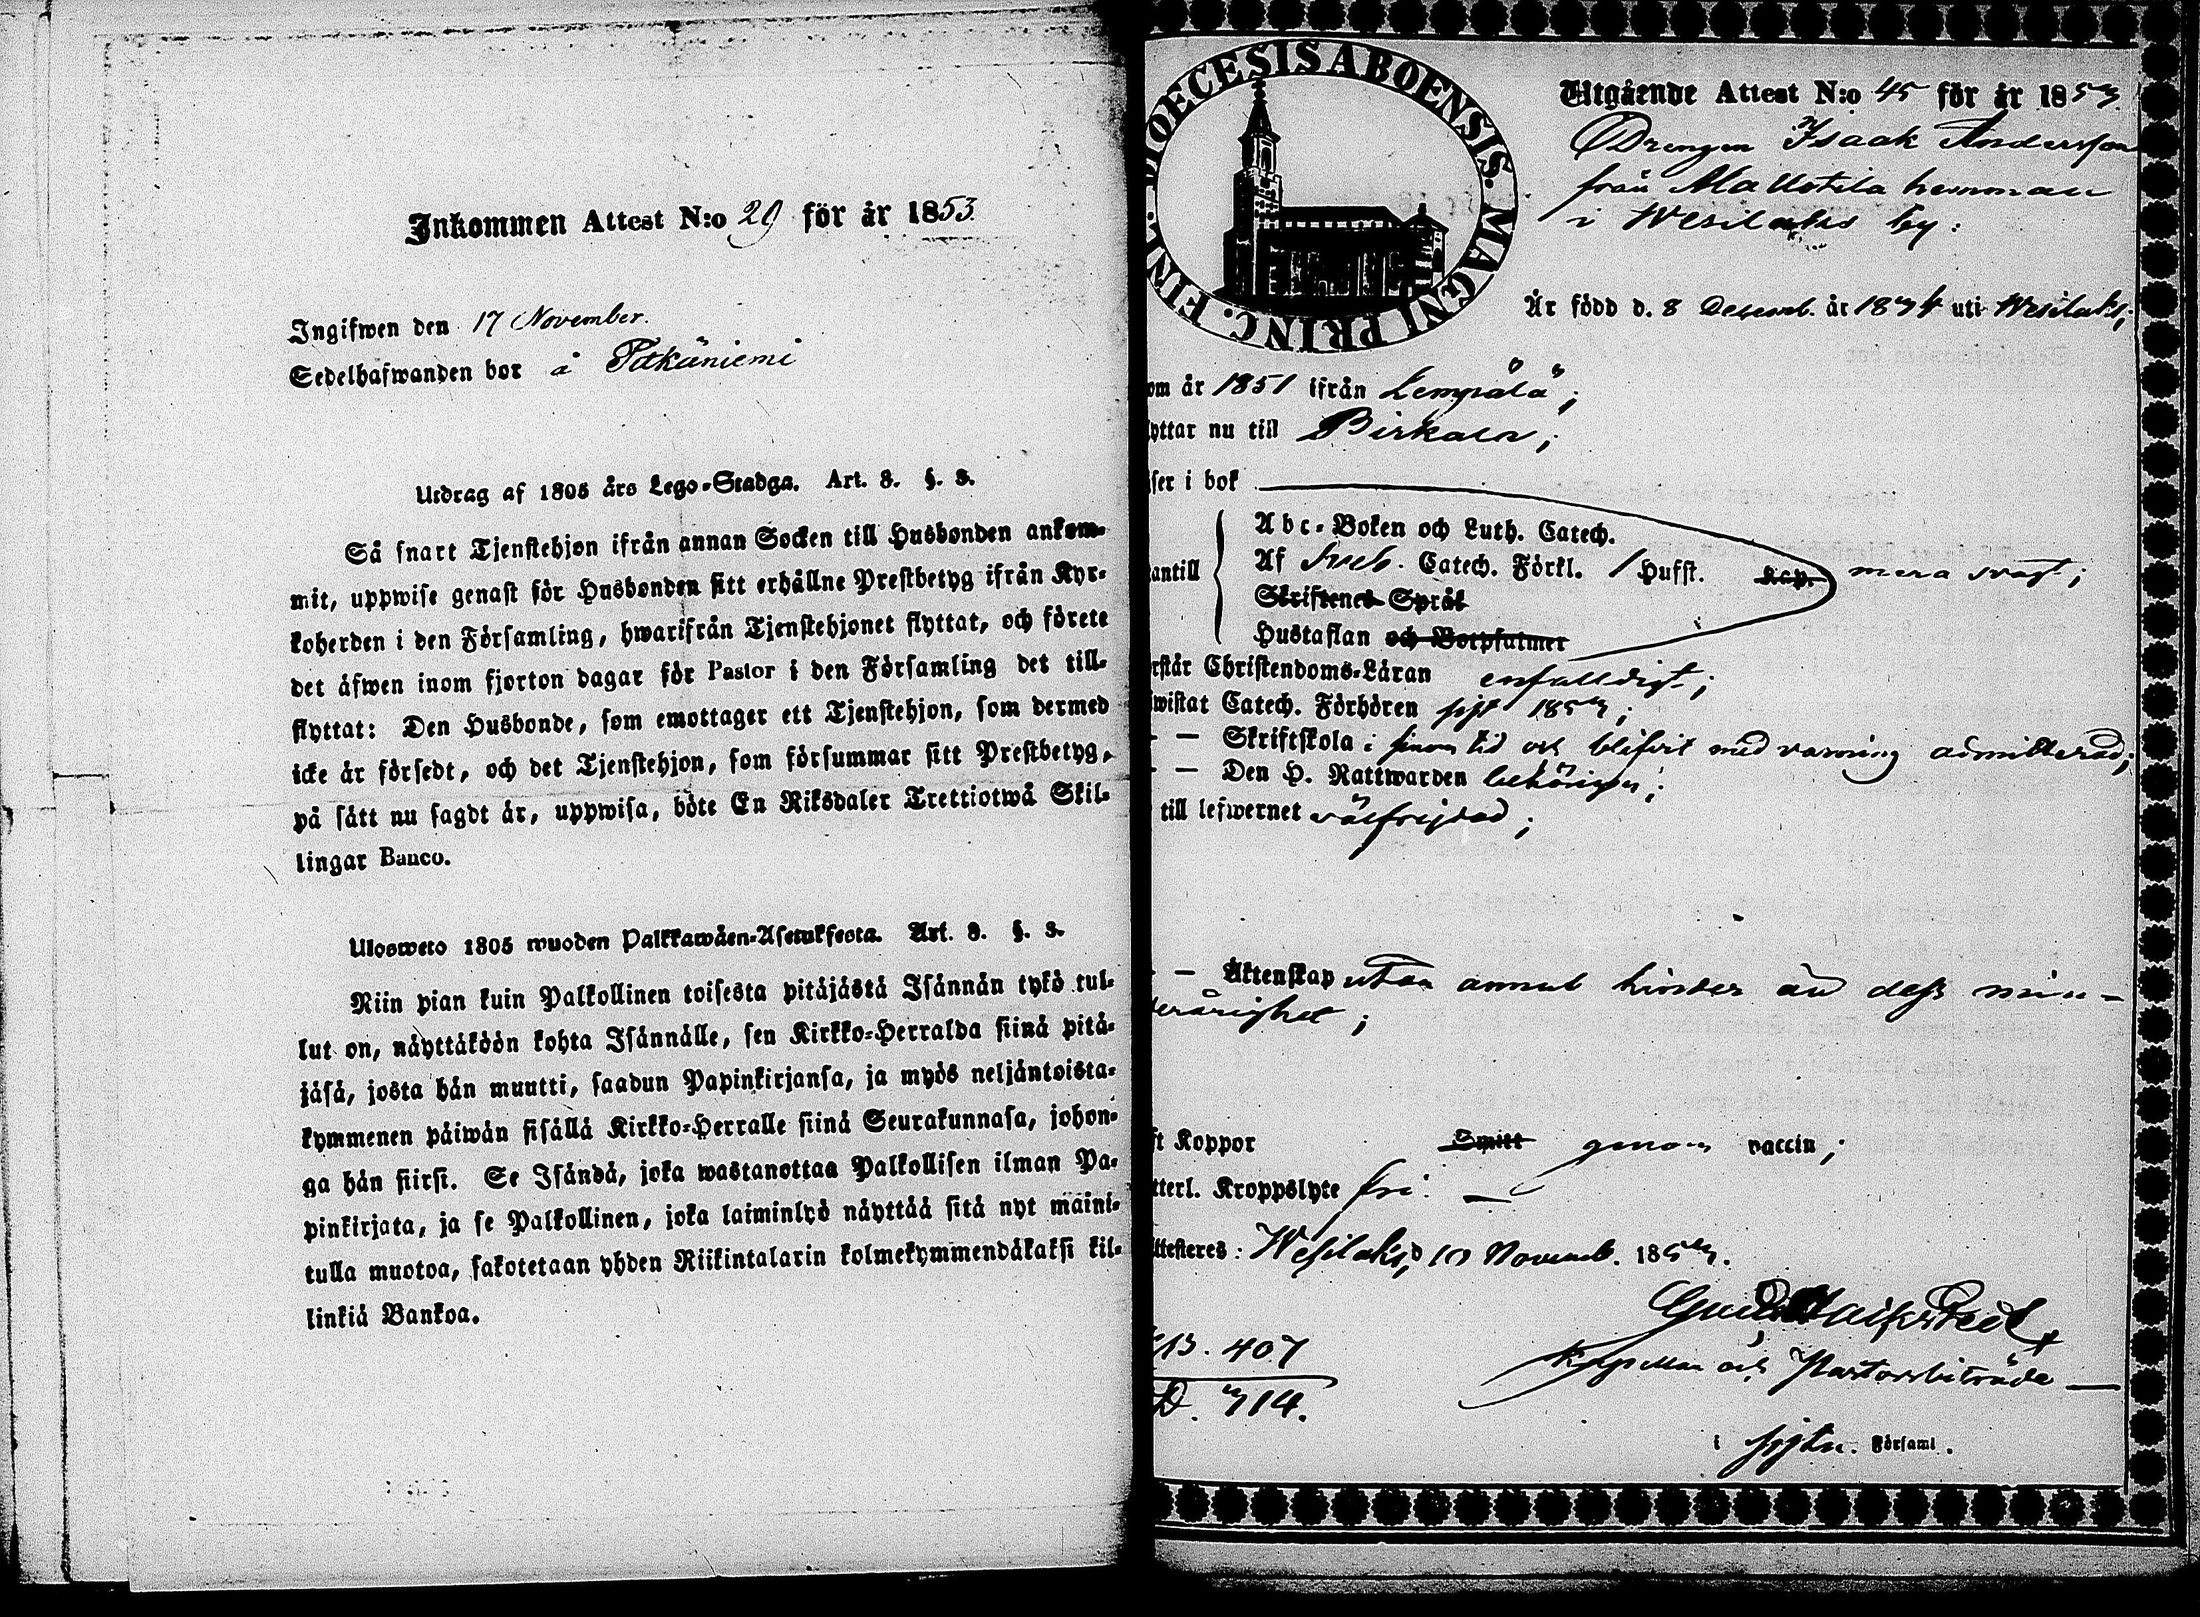 Inkommen Attest N:o 29 för år 1853.
Ingifwen den 17 November.
Sedelhafwanden bor å Pitkäniemi
Utdrag af 1805 års Lego-Stadga. Art. 8. §. 3.
Så snart Tjenstehjon ifrån annan Socken till Husbonden ankom-
mit, uppwise genast för Husbonden sitt erhållne Prestbetyg ifrån Kyr-
koherden i den Församling, hwarifrån Tjenstehjonet flyttat, och förete
det äfwen inom fjorton dagar för Pastor i den Församling det till-
flyttat: Den Husbonde, som emottager ett Tjenstehjon, som dermed
icke är försedt, och det Tjenstehjon, som försummar sitt Prestbetyg,
på sätt nu sagdt är, uppwisa, böte En Riksdaler Trettiotwå Skil-
lingar Banco.
Ulosweto 1805 wuoden Palkkawäen-Asetuksesta. Art. 8. §. 3.
Niin pian kuin Palkollinen toisesta pitäjästä Isännän tykö tul-
lut on, näyttäköön kohta Isännälle, sen Kirkko-Herralda siinä pitä-
jäsä, josta hän muutti, saadun Papinkirjansa, ja myös neljäntoista-
kymmenen päiwän sisällä Kirkko-Herralle siinä Seurakunnasa, johon-
ga hän siirsi. Se Isändä, joka wastanottaa Palkollisen ilman Pa-
pinkirjata, ja se Palkollinen, joka laiminlyö näyttää sitä nyt maini-
tulla muotoa, sakotetaan yhden Riikintalarin kolmekymmendäkaksi kil-
linkiä Bankoa.
DIOECESIS ABOENSIS. MAGNI PRINC. FINL.
Utgående Attest N:o 45 för år 1853
Drengen Isaak Andersson
från Mallotila hemman
i Wesilaks by:
Är född d. 8 Decemb. år 1834 uti Wesilaks;
om år 1851 ifrån Lempälä;
yttar nu till Birkala;
ser i bok
Abc-Boken och Luth. Catech.
antill Af Sveb. Catech. Förkl. / Hufst. Kap. mera svagt;
Skriftenes Språk
Hustaflan och Botpsalmer
rstår Christendoms-Läran enfalldigt;
wistat Catech. Förhören sist 1853;
- - Skriftskola i sinom tid och blifvit med varning admitterad;
- - Den H. Nattwarden behörigen;
till lefwernet välfrejdad;
- - Äktenskap utan annat hinder än dess min-
derårighet;
ft Koppor Smitt genom vaccin;
tterl. Kroppslyte fri. —
ttesteres: Wesilaks, d 10 Novemb. 1853.
Kapellan och Pastorsbiträde —
B. 407
D. 314.
i Församl.